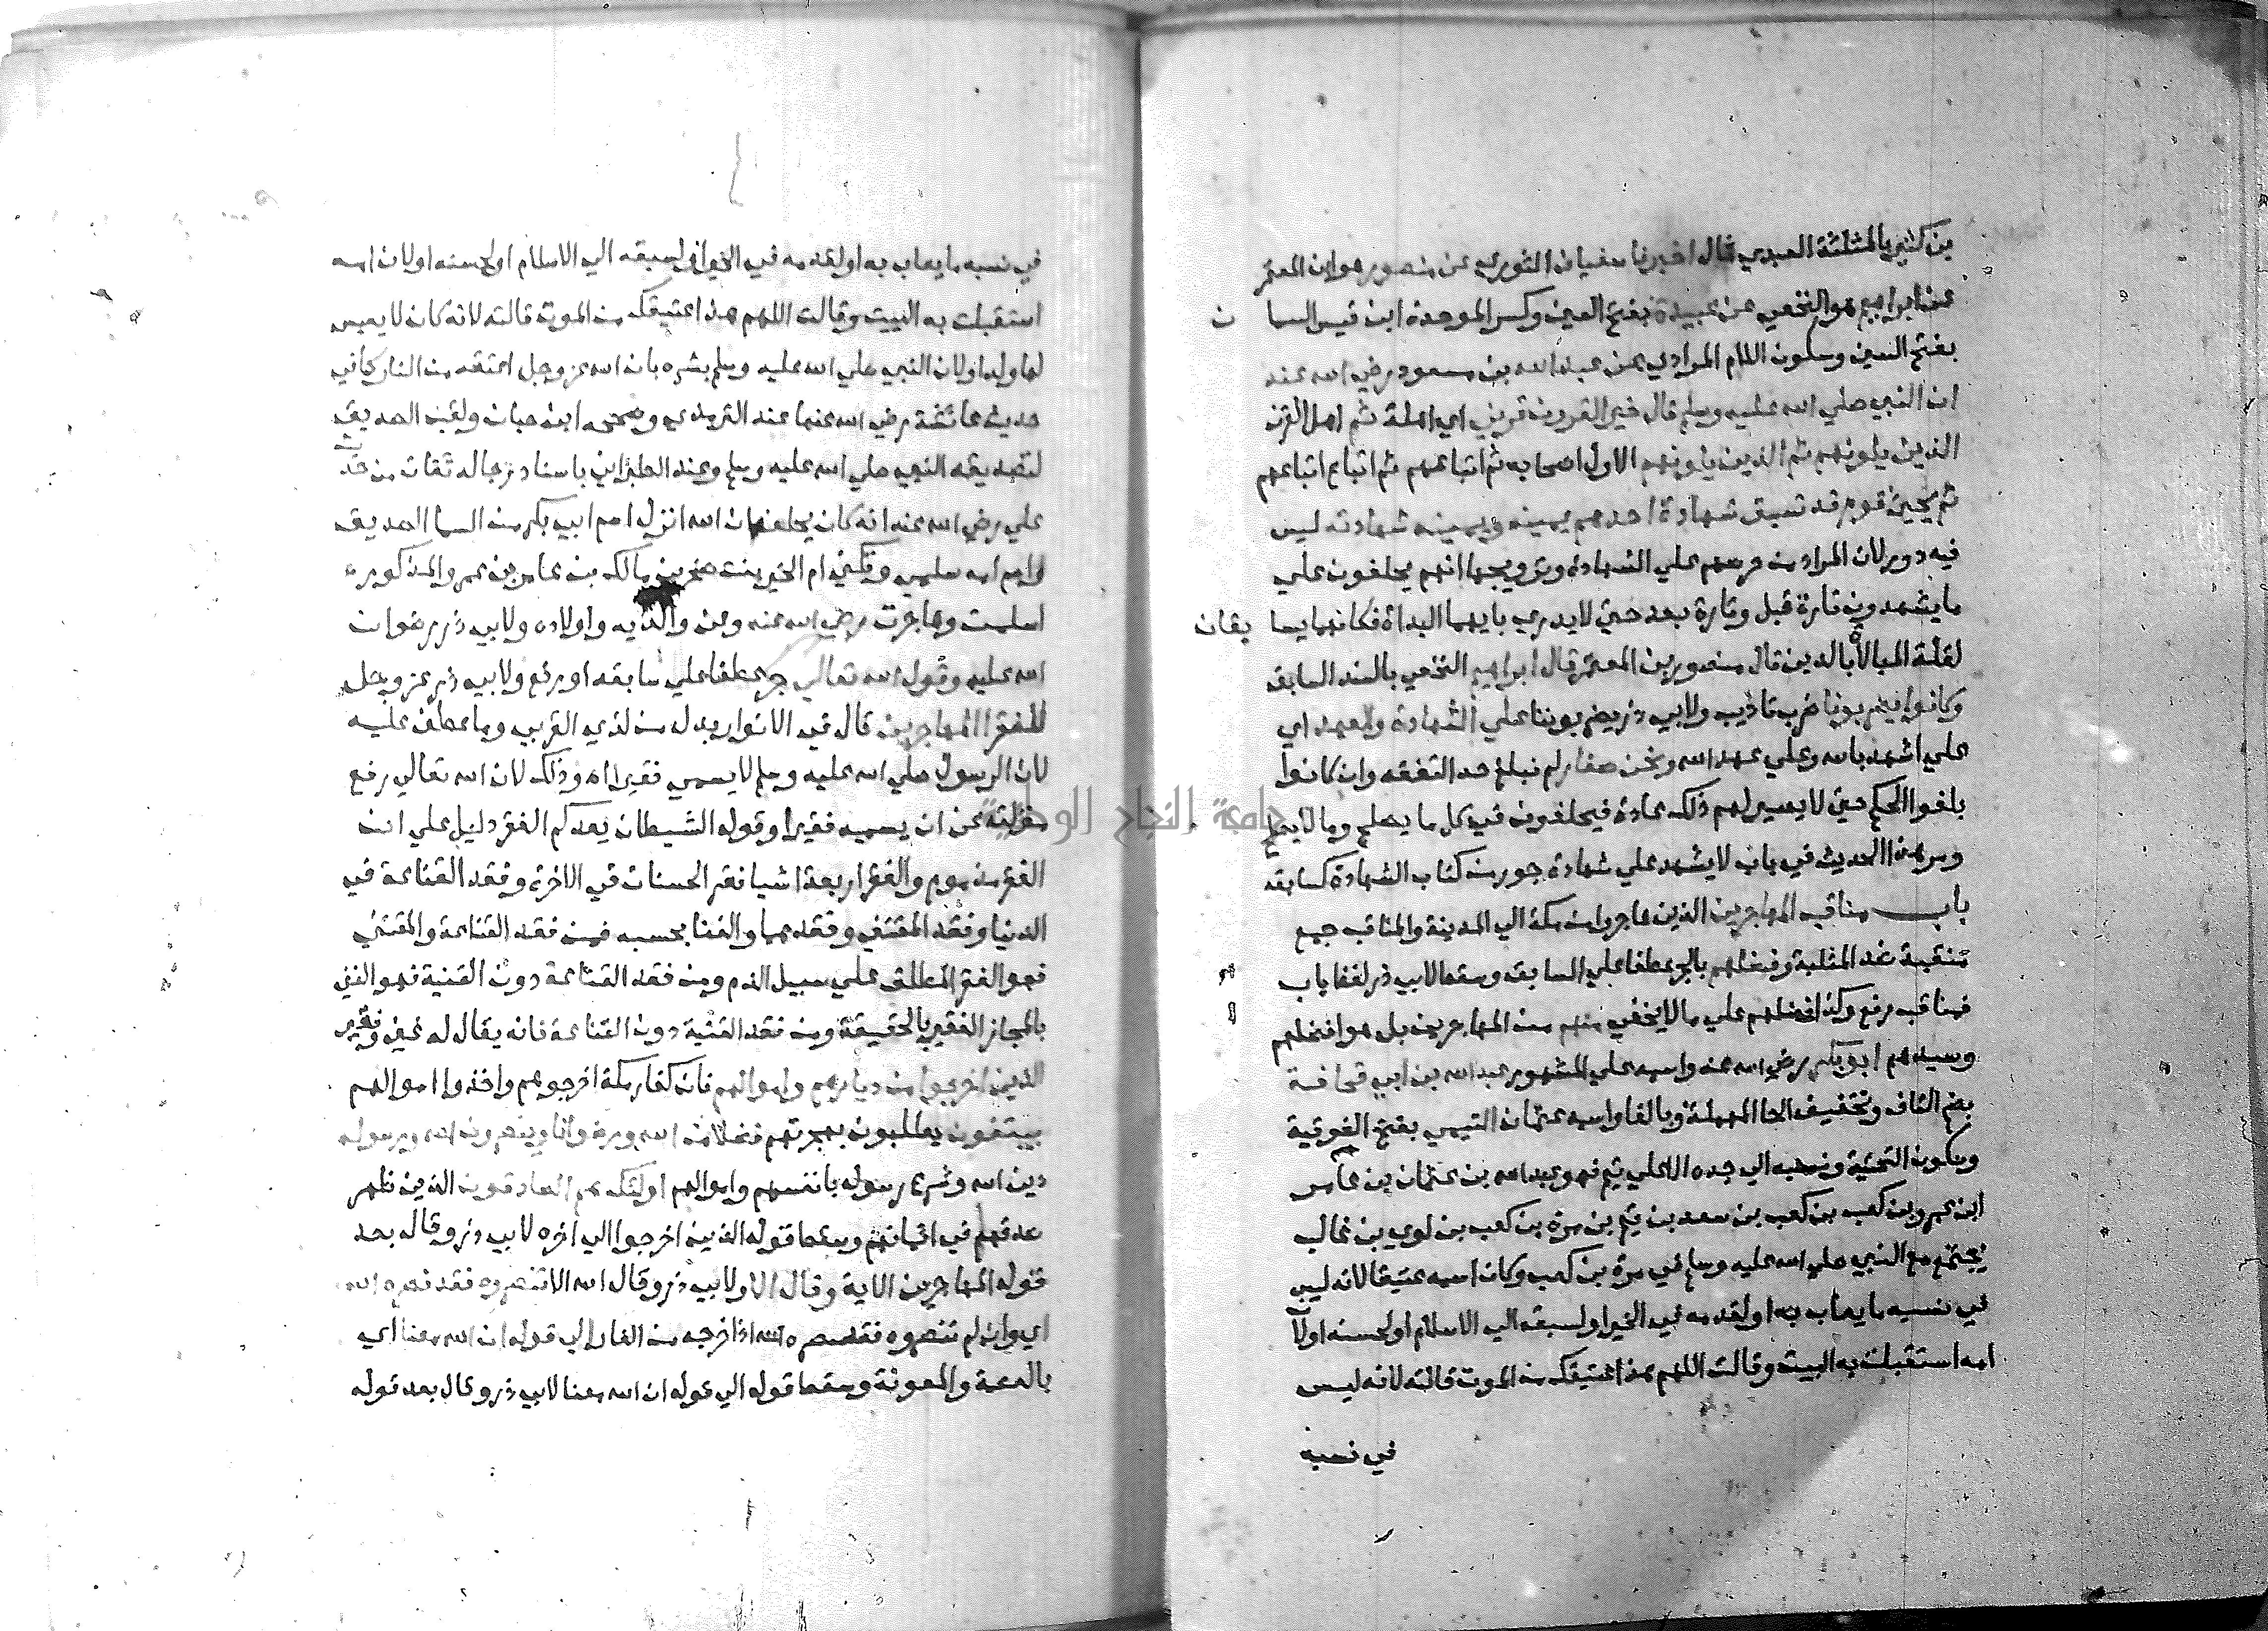 بن كثير بالمثلثة العبدي قال اخبرنا سفيان الثوري عن منصور هو ابن المعتمر
عن ابراهيم هو النخعي عن عبيدة بفتح العين وكسر الموحدة ابن قيس السلما ن
بفتح السين وسكون اللام المرادي عن عبد الله بن مسعود رضي الله عنه
ان النبي صلي الله عليه وسلم قال خير القرون قرني اي اهله ثم اهل القرن
الذين يلونهم ثم الذين يلونهم الاول اصحابه ثم اتباعهم ثم اتباع اتباعهم
ثم يجيئ قوم قد تسبق شهادة احدهم يمينه ويمينه شهادته ليس
فيه دور لان المراد من حرصهم علي الشهادة وترويجها انهم يحلفون علي
ما يشهدون تارة قبل وتارة بعد حتي لا يدري بايهما البداة فكانهما يسا بقان
لقلة المبالاة بالدين قال منصور بن المعتمر قال ابراهيم النخعي بالسند السابق
وكانوا يضربونا ضرب تاديب ولابي ذر يضربوننا علي الشهادة والعهد اي
علي اشهد بالله وعلي عهد الله ونحن صغار لم نبلغ حد التفقه وان كانوا
بلغوا الحكم حتي لا يصير لهم ذلك عادة فيحلفون في كل ما يصلح وما لا يصلح
ومر هذا الحديث في باب لا يشهد علي شهادة جور من كتاب الشهادة كسابقه
باب مناقب المهاجرين الذين هاجروا من مكة الي المدينة والمناقب جمع
منقبة ضد المثلبة وفضلهم بالجر عطفا علي السابق وسقط لابي ذر لفظ باب
فمناقب رفع وكذا فضلهم علي ما لا يخفي منهم من المهاجرين بل هو افضلهم
وسيدهم ابو بكر رضي الله عنه واسمه علي المشهور عبد الله بن ابي قحافة
بضم القاف وتخفيف الحا المهملة وبالفا واسمه عثمان التيمي بفتح الفوقية
وسكون التحتية ونسبه الي جده الاعلي تيم فهو عبد الله بن عثمان بن عامر
ابن عمرو بن كعب بن كعب بن سعد بن تيم بن مرة بن كعب بن لوي بن غالب
يجتمع مع النبي صلي الله عليه وسلم في مرة بن كعب وكان اسمه عتيقا لانه ليس
في نسبه ما يعاب به او لقدمه في الخير او لسبقه الي الاسلام او لحسنه او لان
امه استقبلت به البيت وقالت اللهم هذا عتيقك من الموت قالته لانه ليس
في نسبه
في نسبه ما يعاب به او لقدمه في الخير او لسبقه الي الاسلام او لحسنه او لان امه
استقبلت به البيت وقالت اللهم هذا عتيقك من الموت قالته لانه كان لا يعيس
لها ولد او لان النبي صلي الله عليه وسلم بشره بان الله عز وجل اعتقه من النار كما في
حديث عائشة رضي الله عنها عند الترمذي وصححه ابن حبان ولقب الصديق
لتصديقه النبي صلي الله عليه وسلم وعند الطبراني باسناد رجاله ثقات من حديث
علي رضي الله عنه انه كان يحلف ان الله انزل اسم ابي بكر من السما الصديق
واسم امه سلمي وتكني ام الخير بنت صخر بن مالك بن عامر بن عمرو المذكور
اسلمت وهاجرت رضي الله عنه وعن والديه واولاده ولابي ذر رضوان
الله عليه وقول الله تعالي جر عطفا علي سابقه او رفع ولابي ذر عز وجل
للفقرا المهاجرين قال في الانوار بدل من لذي القربي وما عطف عليه
لان الرسول صلي الله عليه وسلم لا يسمي فقيرا اه وذلك لان الله تعالي رفع
منزلته عن ان يسميه فقيرا وقوله الشيطان يعدكم الفقر دليل علي ان
الفقر مذموم والفقر اربعة اشيا فقر الحسنات في الاخرة وفقد القناعة في
الدنيا وفقد المقتني وفقدهما والغنا بحسبه فمن فقد القناعة والمقتني
فهو الفقر المطلق علي سبيل الذم ومن فقد القناعة دون القنية فهو الغني
بالمجاز الفقير بالحقيقة ومن فقد القنية دون القناعة فانه يقال له غني وفقير
الذين اخرجوا من ديارهم واموالهم فان كفار مكة اخرجوهم واخذوا اموالهم
يبتغون يطلبون بهجرتهم فضلا من الله ورضوانا وينصرون الله ورسوله
دين الله وشرع رسوله بانفسهم واموالهم اولئك هم الصادقون الذين ظهر
صدقهم في ايمانهم وسقط قوله الذين اخرجوا الي اخره لابي ذر وقال بعد
قوله المهاجرين الاية وقال الله ولابي ذر وقال الله الا تنصروه فقد نصره الله
اي وان لم تنصروه فقد نصره الله اذ اخرجه من الغار الي قوله ان الله معنا اي
بالعصمة والمعونة وسقط قوله الي قوله ان الله معنا لابي ذر وقال بعد قوله
جامعة النجاح الوطنية